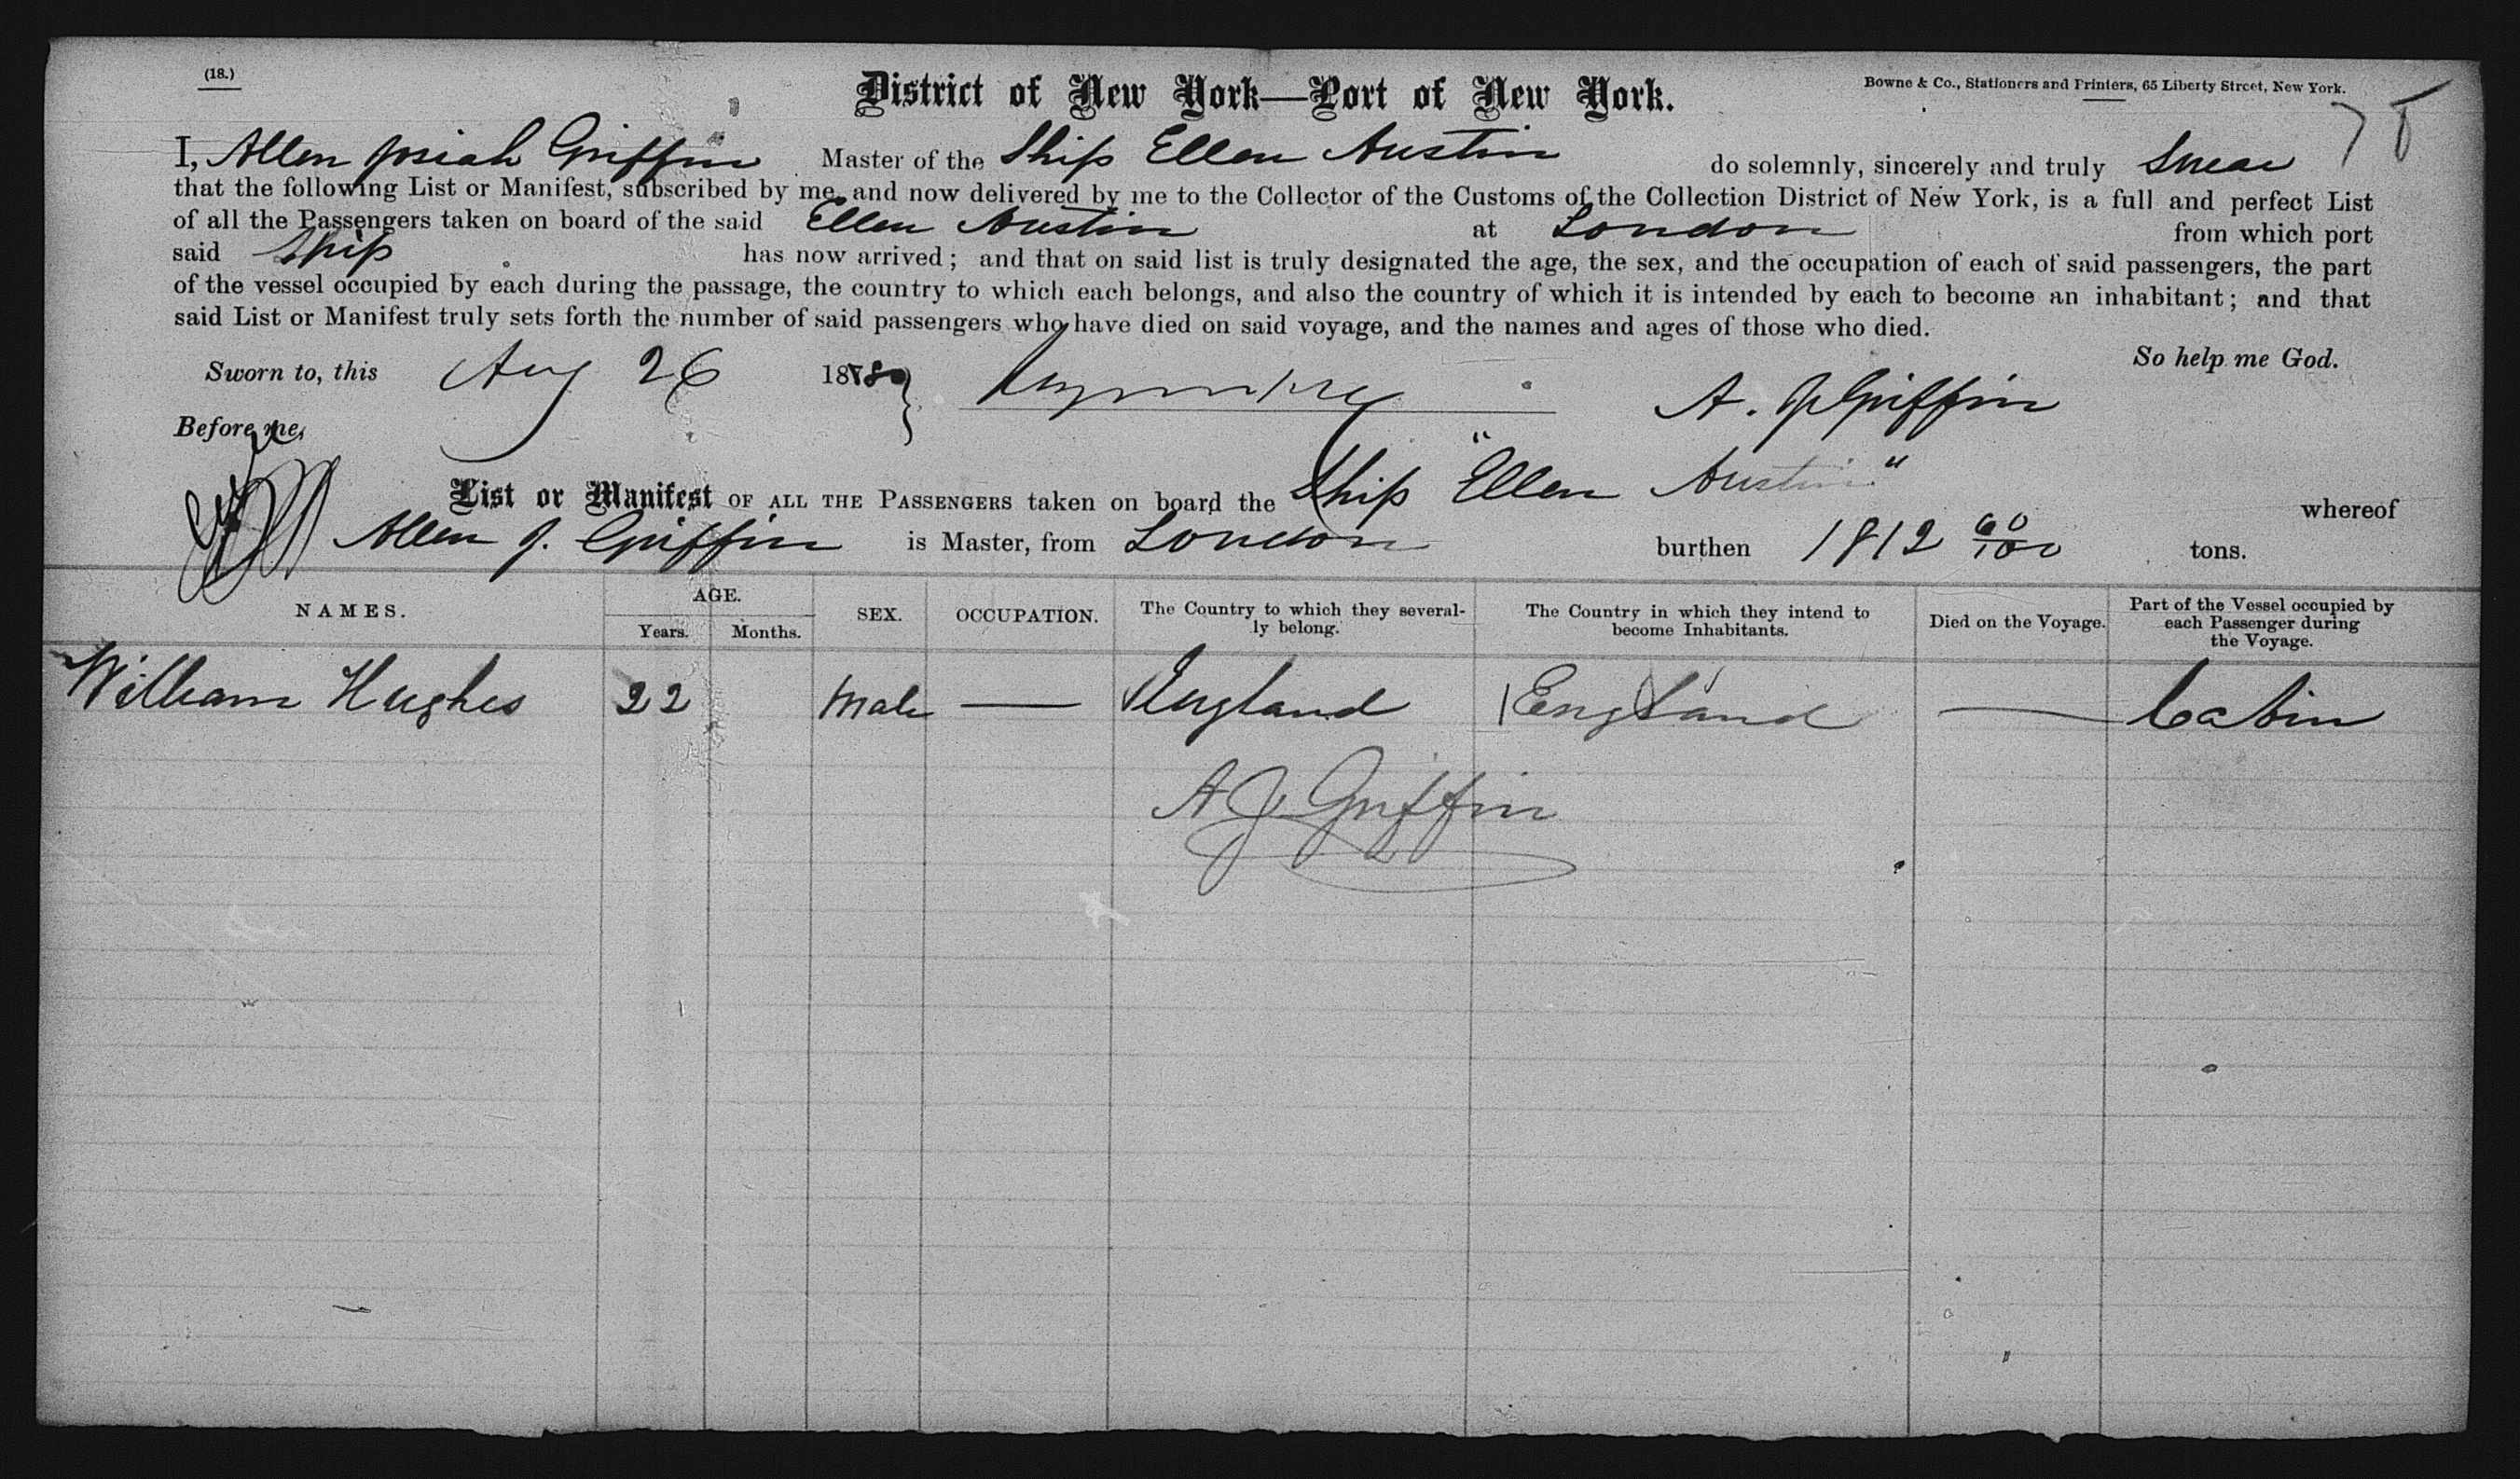 (18.)
District of New York—Port of New York.
Bowne & Co., Stationers and Printers, 65 Liberty Street, New York.
I, Allen Josiah Griffin Master of the Ship Ellen Austin do solemnly, sincerely and truly Swear
that the following List or Manifest, subscribed by me, and now delivered by me to the Collector of the Customs of the Collection District of New York, is a full and perfect List
of all the Passengers taken on board of the said Ellen Austin at London from which port
said Ship has now arrived; and that on said list is truly designated the age, the sex, and the occupation of each of said passengers, the part
of the vessel occupied by each during the passage, the country to which each belongs, and also the country of which it is intended by each to become an inhabitant; and that
said List or Manifest truly sets forth the number of said passengers who have died on said voyage, and the names and ages of those who died.
So help me God.
Sworn to, this Aug 26 18
A. J Griffin
Before me,
List or Manifest OF ALL THE PASSENGERS taken on board the Ship "Ellen Austin" whereof
Allen J. Griffin is Master, from London burthen 1812 60/100 tons.
NAMES. AGE. Years. Months. SEX. OCCUPATION. The Country to which they severally belong. The Country in which they intend to become Inhabitants. Died on the Voyage. Part of the Vessel occupied by each Passenger during the Voyage.
William Hughes 22 Male — England England — Cabin
A J Griffin